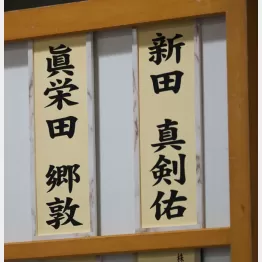 新田 真剣佑
眞栄田 郷敦